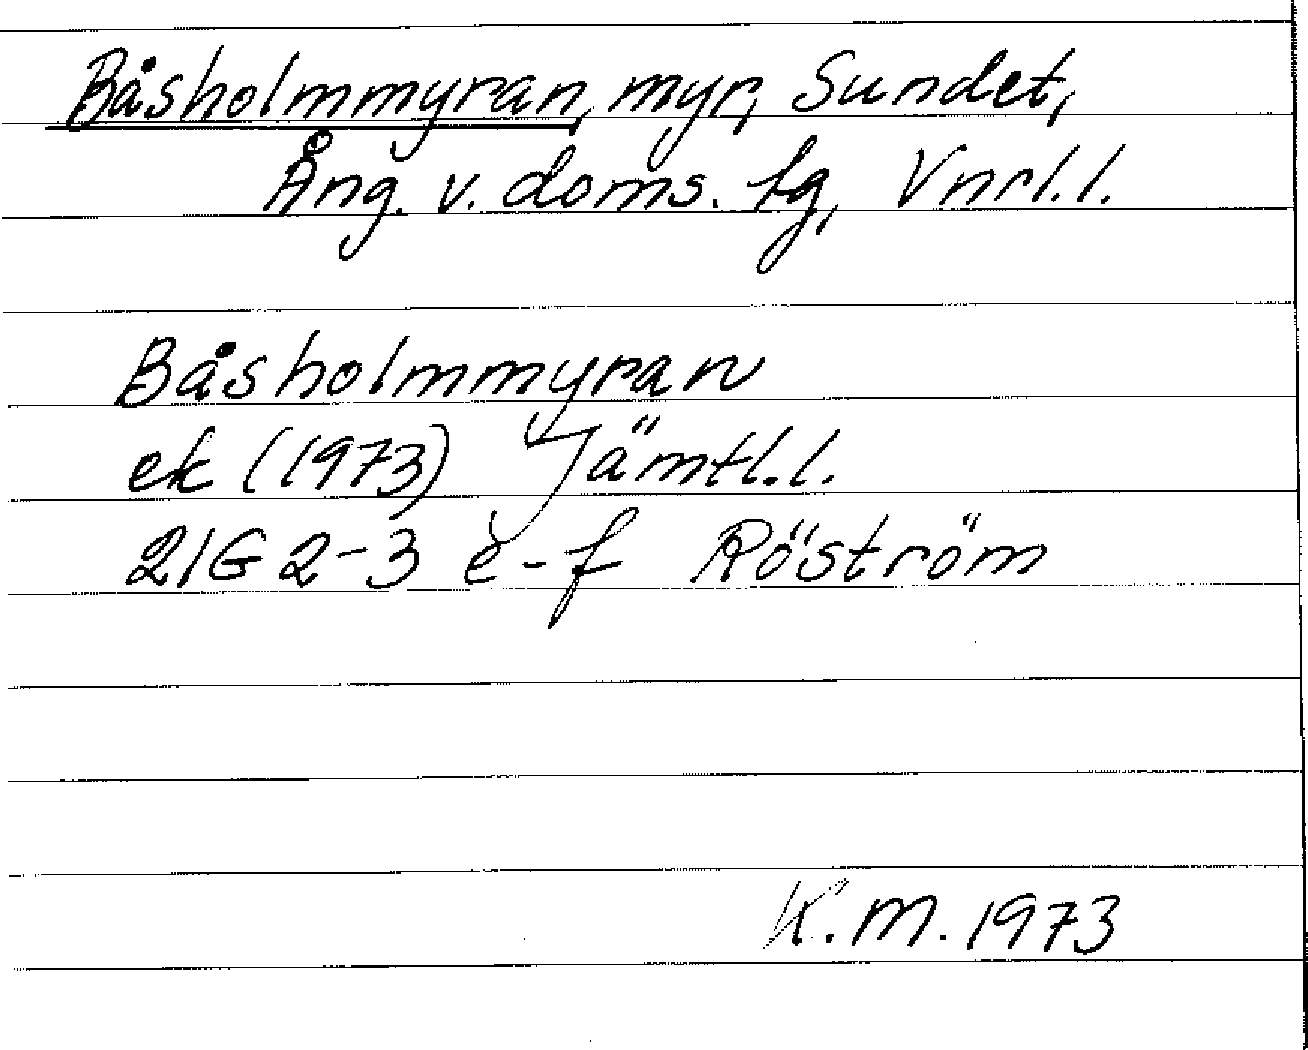 Båsholmmyran, myr, Sundet,
Ång. v. doms. tg, Vnrl.l.
Båsholmmyran
ek (1973) Jämtl.l.
21G 2-3 e-f Röström
K.M. 1973